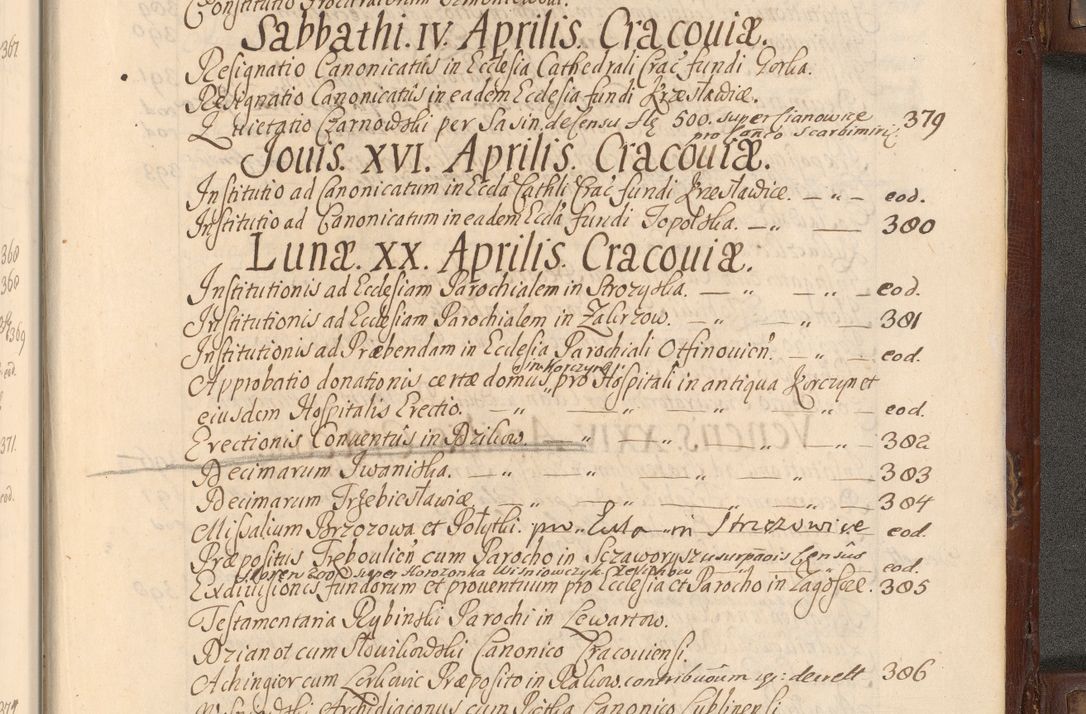 Constitutio Procuratorum
Sabbathi. IV. Aprilis. Cracouiæ.
Resignatio Canonicatûs in Ecclesia Cathedrali Crac̃ fundi Gorka.
Resignatio Canonicatûs in eadem Ecclesia fundi Krzesławice.
Quietatio Czarnowski per Sasin. de censu 500. super Cianowice 379
Jouis. XVI. Aprilis. Cracouiæ.
Institutio ad Canonicatum in Eccla Cathli Crac̃ fundi Krzesławice. — „ — eod.
Institutio ad Canonicatum in eadem Eccla fundi Topolska. — „ — 380
Lunæ. XX. Aprilis. Cracouiæ.
Institutionis ad Ecclesiam Parochialem in Strozyska. — „ — „ — eod.
Institutionis ad Ecclesiam Parochialem in Zabirzow. — „ — „ — 381
Institutionis ad Præbendam in Ecclesia Parochiali Otfinouien̄. — „ — eod.
in Korczyn
Approbatio donationis certæ domus, pro Hospitali in antiqua Korczyn et
eiusdem Hospitalis Erectio. — „ — „ — „ — „ — eod.
Erectionis Conuentûs in Dzikow. — „ — „ — „ — „ — 382
Decimarum Iwaniska. — „ — „ — „ — „ — 383
Decimarum Trzebiesławice — „ — „ — „ — „ — 384
Missalium Brzozowa et Połytki. in Strzezowice eod.
Præpositus Treboulien̄ cum Parocho in Sczaworysz Censûs eod.
super Korozonka Wisniowczyk
Exdiuisionis fundorum et prouentuum pro Ecclesia et Parocho in Zagosce. 385
Testamentaria Rybinski Parochi in Lewartow.
Dzianot cum Słowikowski Canonico Cracouiensi.
Achingier cum Præposito in Rakow. contribuōum decrett 386
Archidiaconus cum Canonico Lublinensi
367.
360
360
371.
eod.